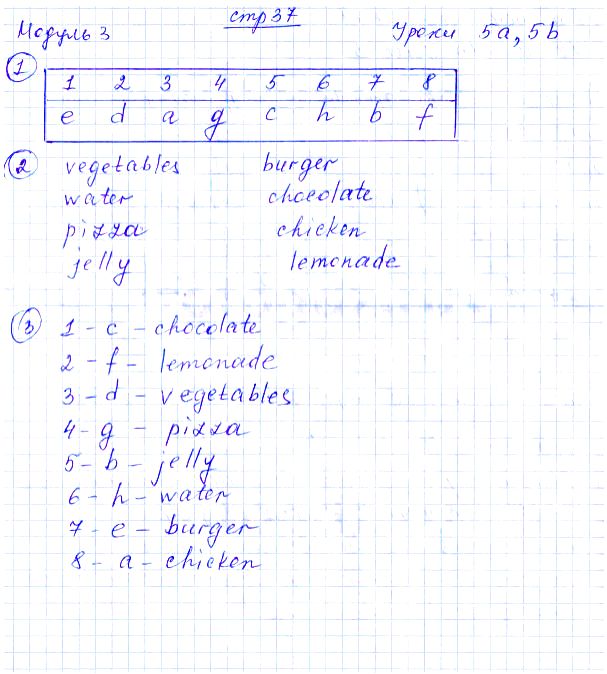 стр 37
Модуль 3 Уроки 5a, 5b
1
1 2 3 4 5 6 7 8
e d a g c h b f
2 vegetables burger
water chocolate
pizza chicken
jelly lemonade
3 1 - c - chocolate
2 - f - lemonade
3 - d - vegetables
4 - g - pizza
5 - b - jelly
6 - h - water
7 - e - burger
8 - a - chicken